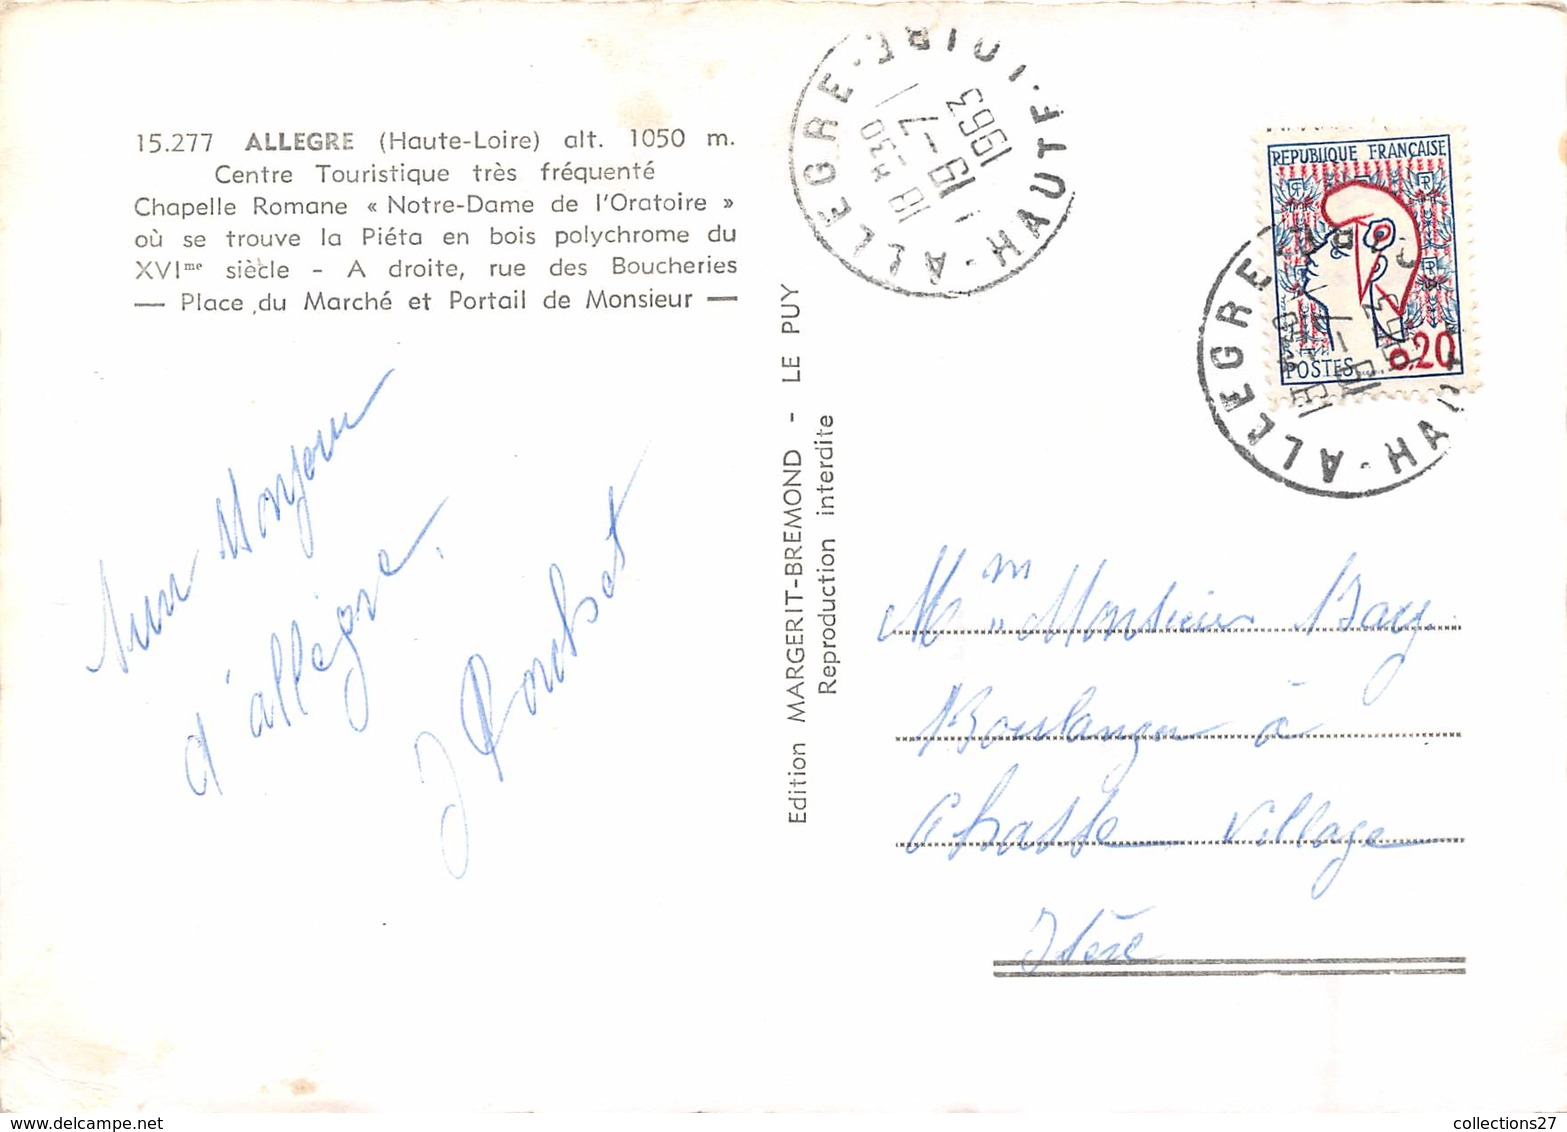 15.277 ALLEGRE (Haute-Loire) alt. 1050 m.
Centre Touristique très fréquenté
Chapelle Romane « Notre-Dame de l'Oratoire »
où se trouve la Piéta en bois polychrome du
XVIme siècle - A droite, rue des Boucheries
— Place du Marché et Portail de Monsieur —
Bonjour
d'allègre.
J Rouchet
Edition MARGERIT-BREMOND - LE PUY
Reproduction interdite
ALLEGRE · HAUTE-LOIRE
18 H30
19-7
1963
REPUBLIQUE FRANÇAISE
POSTES
0,20
ALLEGRE · HAUTE-LOIRE
18 H30
19-7
1963
Mme Monsieur Bay
Boulanger à
Chasse Village
Isère
collections27